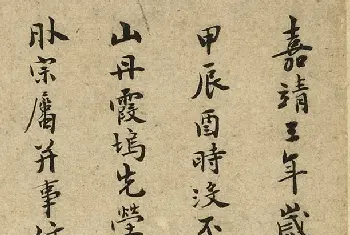 嘉靖年歲
甲辰酉時没不
山丹霞塢先塋
宗屬并事